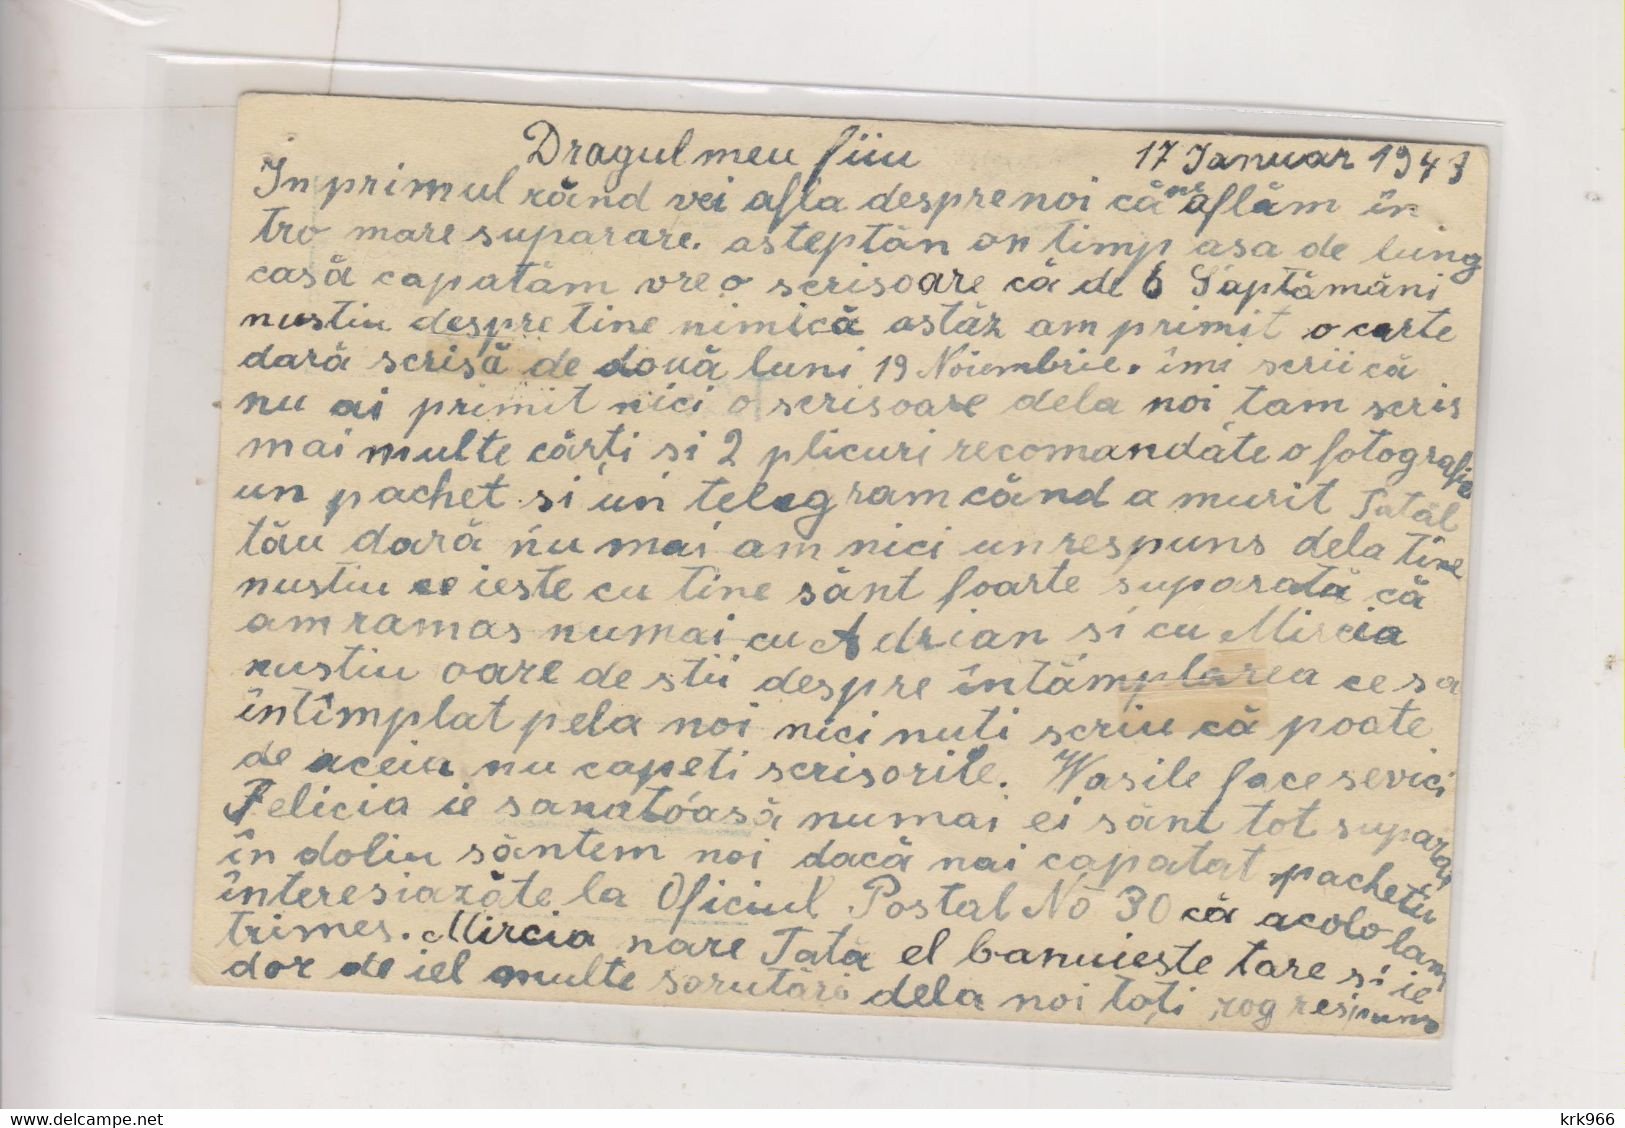 Dragul meu fiiu 17 Januar 1943
In primul rănd vei afla despre noi că ne aflăm în
tro mare suparare. asteptăn on timp asa de lung
casă capatăm vre o scrisoare că de 6 Saptămăni
nustiu despre tine nimică astăz am primit o carte
dară scrisă de două luni 19 Noiembrie. îmi scrii că
nu ai primit nici o scrisoare dela noi tam scris
mai multe cărți si 2 plicuri recomandate o fotografie
un pachet si un telegram cănd a murit Tatăl
tău dară nu mai am nici un respuns dela tine
nustiu ce ieste cu tine sănt foarte suparată că
am ramas numai cu Adrian si cu Mircia
nustiu oare de stii despre întămplarea ce sa
întîmplat pela noi nici nuti scriu că poate
de aceia nu capeti scrisorile. Wasile face sevici
Felicia ie sanatoasă numai ei sănt tot suparați
în doliu săntem noi dacă nai capatat pachetu
interesiazăte la Oficiul Postal No 30 că acolo lam
trimes. Mircia nare Tată el banuieste tare si ie
dor de iel multe sorutări dela noi toți rog respuns
krk966